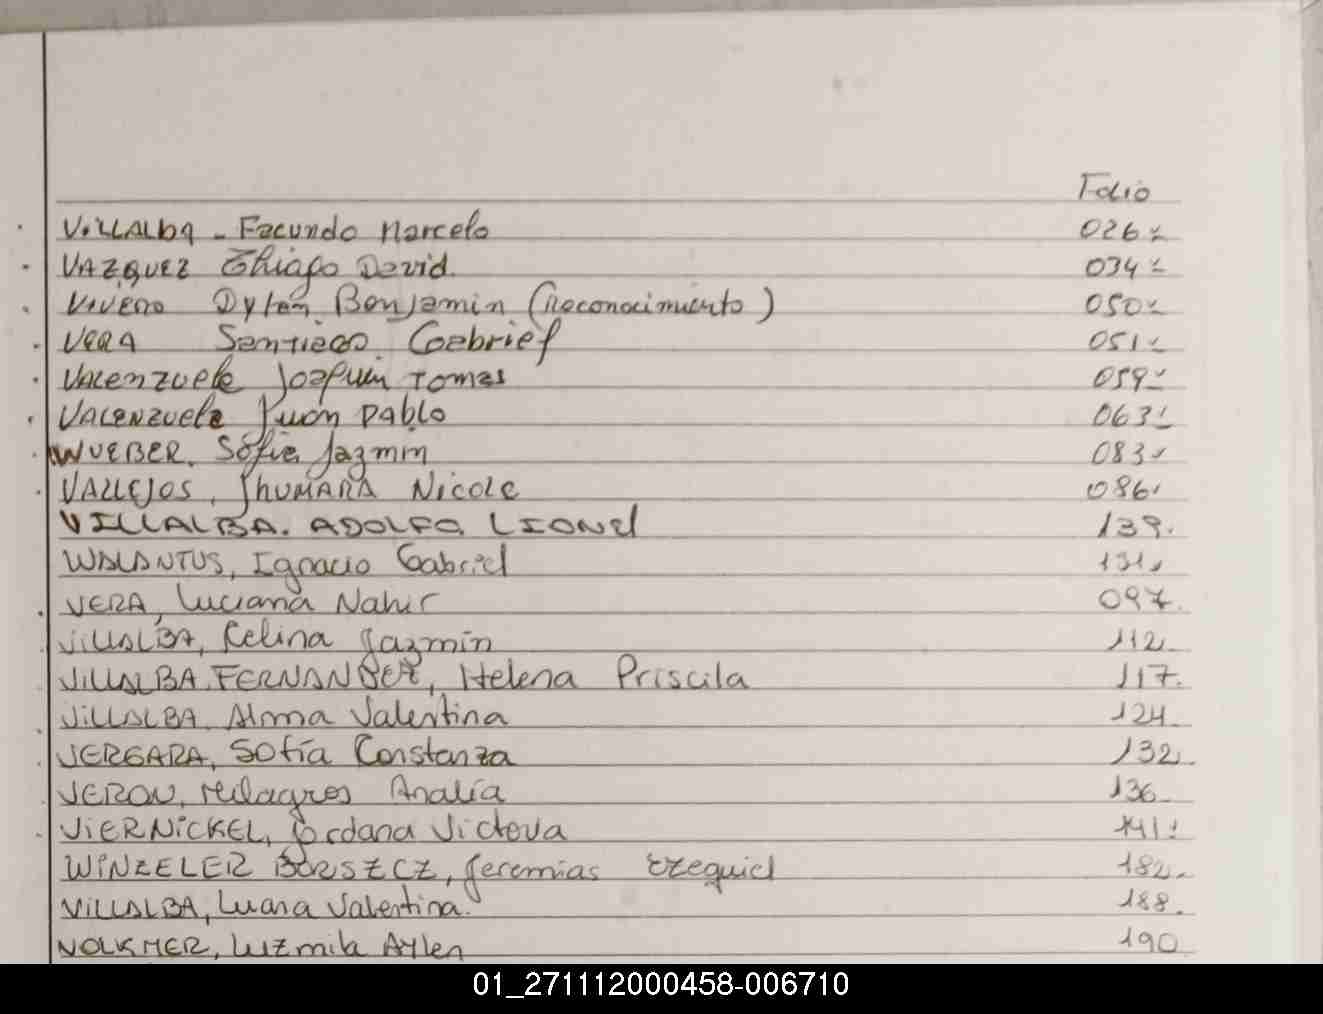 Folio
VILLALBA - Facundo Marcelo 026
VAZQUEZ Thiago David. 034
VIVERO Dylan Benjamin (Reconocimiento) 050
VERA Santiago Gabriel 051
VALENZUELA Joaquin Tomas 059
VALENZUELA Juan Pablo 063
WUEBER. Sofia Jazmin 083
VALLEJOS, Jhumara Nicole 086
VILLALBA. ADOLFO. LIONEL 139.
WALANTUS, Ignacio Gabriel 131.
VERA, Luciana Nahir 097.
VILLALBA, Kelina Jazmín 112.
VILLALBA FERNANDEZ, Helena Priscila 117.
VILLALBA, Alma Valentina 124.
VERGARA, Sofía Constanza 132.
VERON, Milagros Analía 136.
VIERNICKEL, Jordana Victoria 141.
WINZELER BORSZCZ, Jeremias Ezequiel 182.
VILLALBA, Luana Valentina. 188.
VOLKMER, Luzmila Aylen 190
01_271112000458-006710